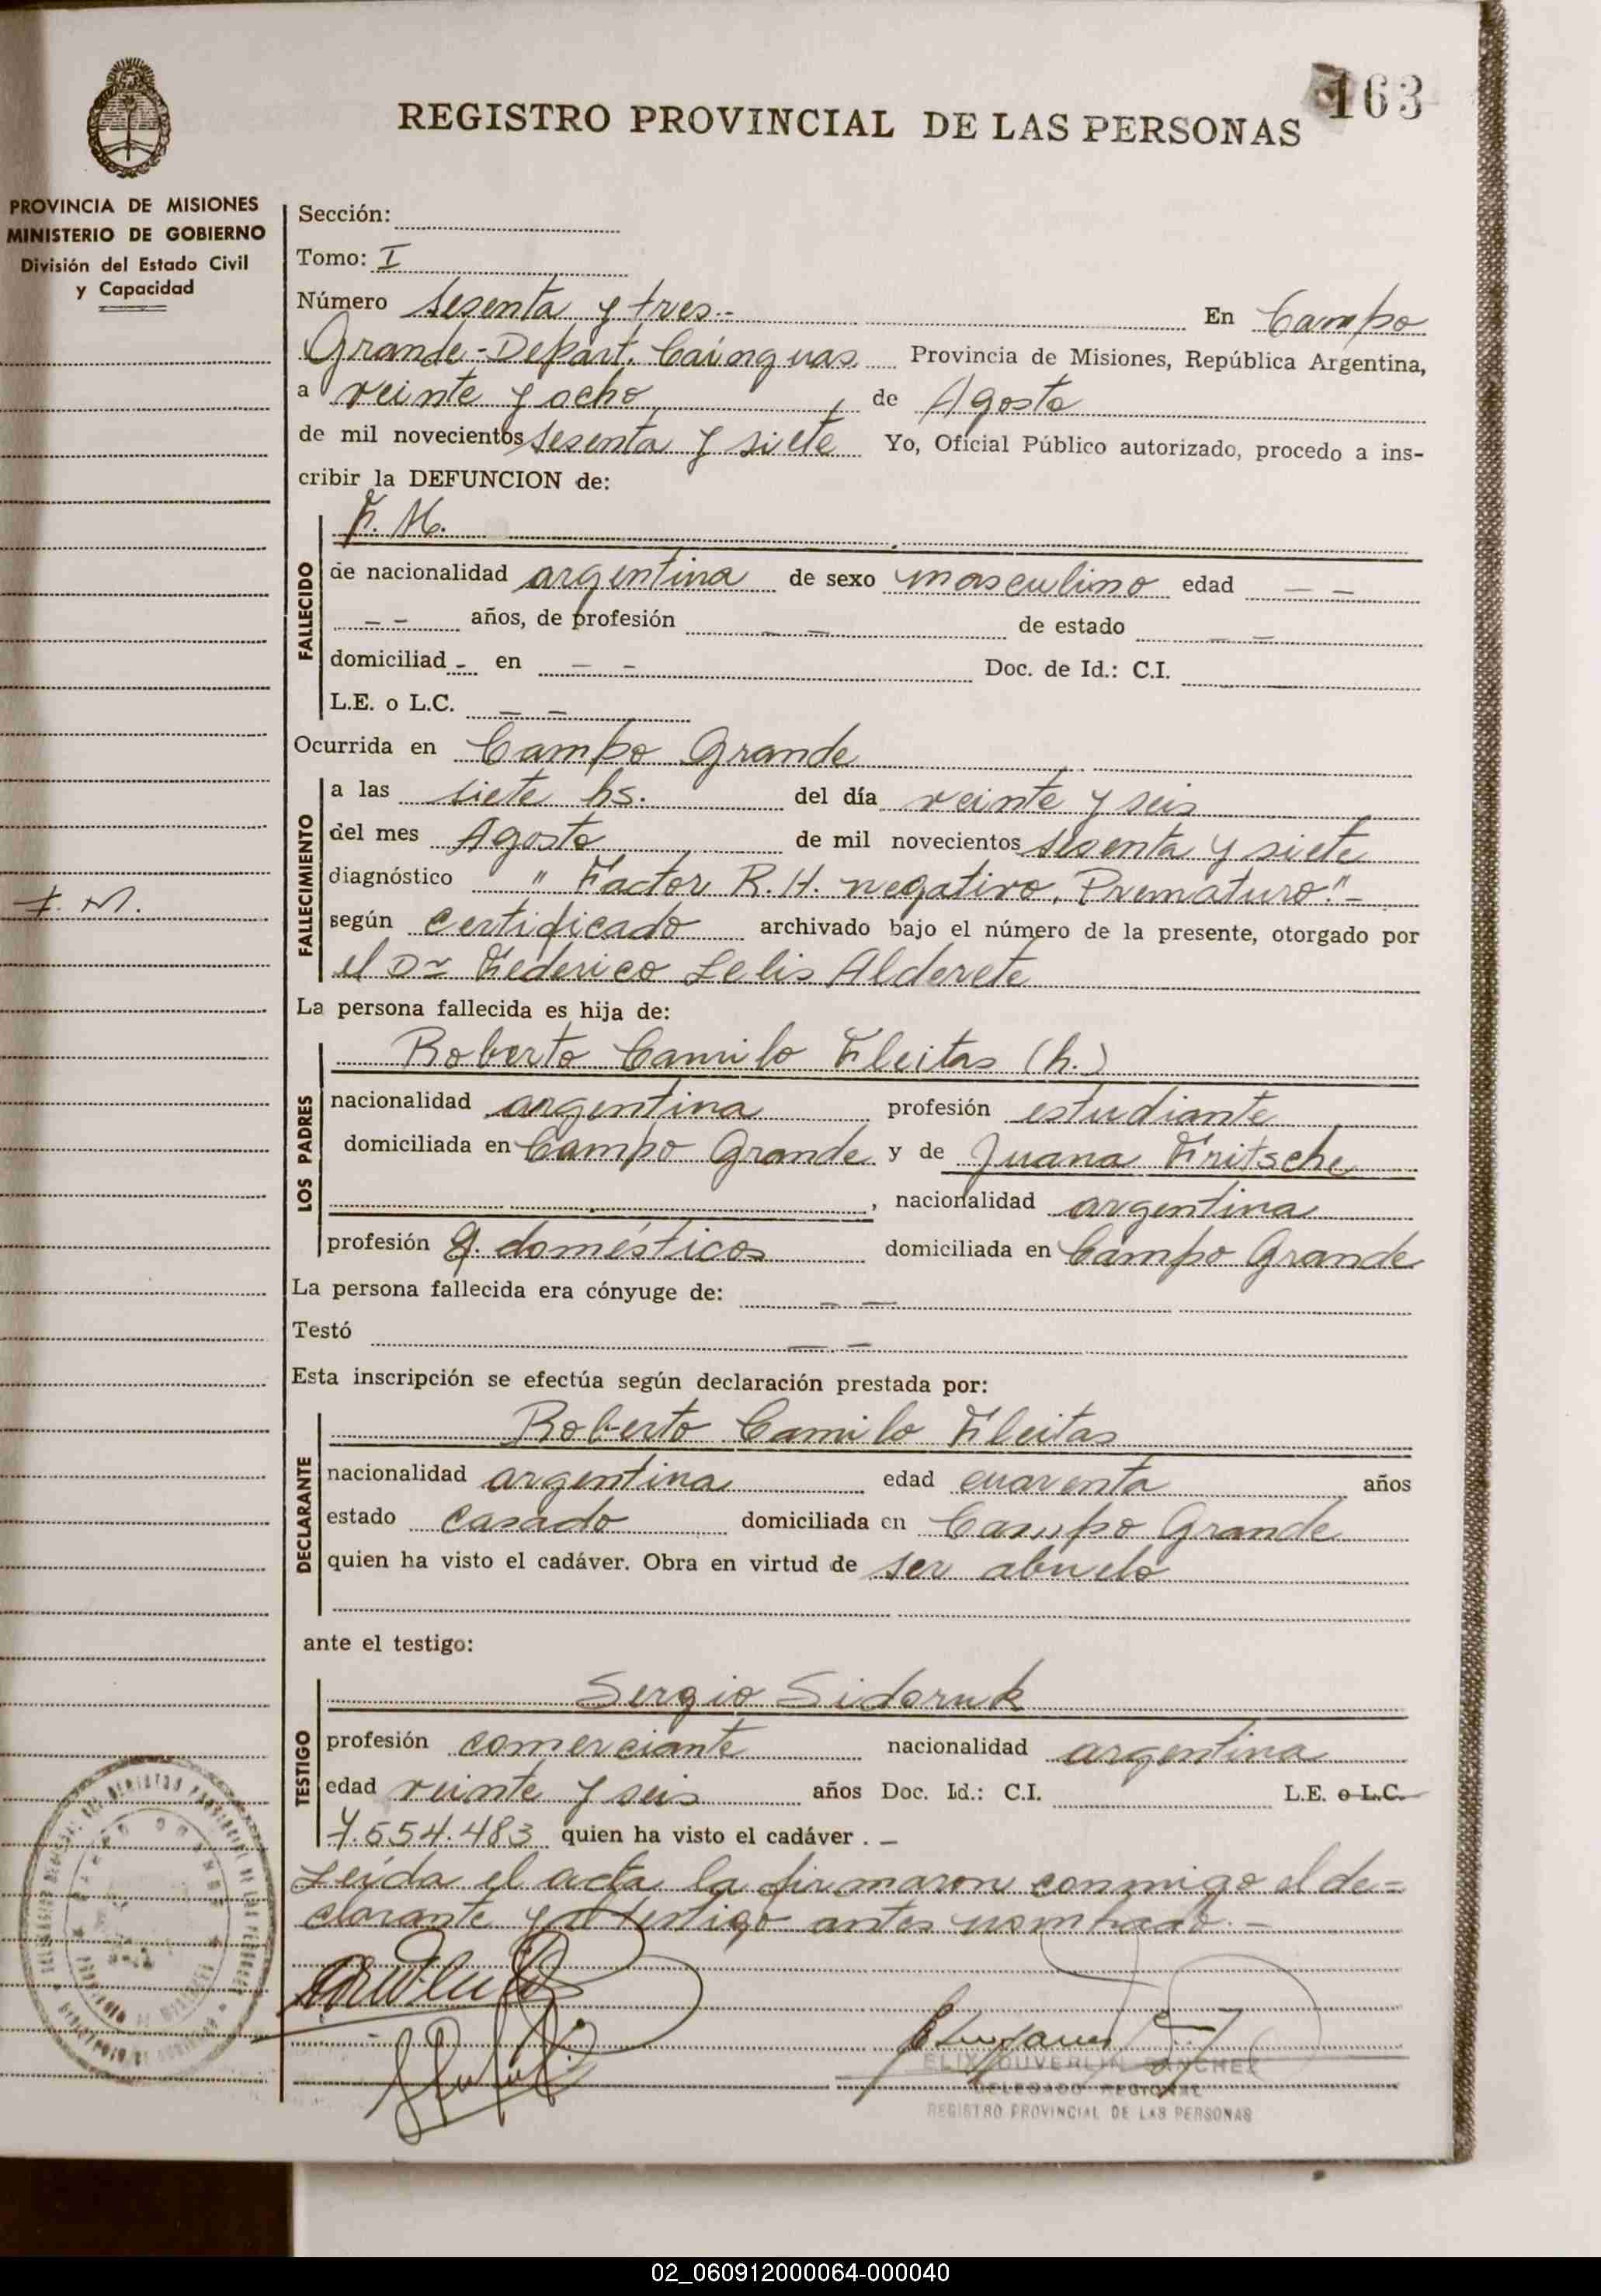 163
REGISTRO PROVINCIAL DE LAS PERSONAS
PROVINCIA DE MISIONES
MINISTERIO DE GOBIERNO
División del Estado Civil
y Capacidad
Sección:
Tomo: I
Número sesenta y tres.- En Campo
Grande-Depart. Cainguas. Provincia de Misiones, República Argentina,
a veinte y ocho de Agosto
de mil novecientos sesenta y siete Yo, Oficial Público autorizado, procedo a ins-
cribir la DEFUNCION de:
FALLECIDO
F. M.
de nacionalidad argentina de sexo masculino edad – –
– – años, de profesión – – de estado – –
domiciliad - en – – Doc. de Id.: C.I.
L.E. o L.C. – –
Ocurrida en Campo Grande
FALLECIMIENTO
a las siete hs. del día veinte y seis
del mes Agosto de mil novecientos sesenta y siete
diagnóstico " Factor R.H. negativo. Prematuro."-
F. M.
según certificado archivado bajo el número de la presente, otorgado por
el Dr Federico Lelis Alderete
La persona fallecida es hija de:
LOS PADRES
Roberto Camilo Fleitas (h.)
nacionalidad argentina profesión estudiante
domiciliada en Campo Grande y de Juana Fritsche
, nacionalidad argentina
profesión Q. domésticos domiciliada en Campo Grande
La persona fallecida era cónyuge de: – –
Testó – –
Esta inscripción se efectúa según declaración prestada por:
DECLARANTE
Roberto Camilo Fleitas
nacionalidad argentina edad cuarenta años
estado casado domiciliada en Campo Grande
quien ha visto el cadáver. Obra en virtud de ser abuelo
ante el testigo:
TESTIGO
Sergio Sidoruk
profesión comerciante nacionalidad argentina
edad veinte y seis años Doc. Id.: C.I. L.E. o L.C.
7.554.483 quien ha visto el cadáver . –
Leida el acta la firmaron conmigo el de=
clarante y el testigo antes nombrado. –
SANCHEZ
DELEGADO REGIONAL
REGISTRO PROVINCIAL DE LAS PERSONAS
02_060912000064-000040